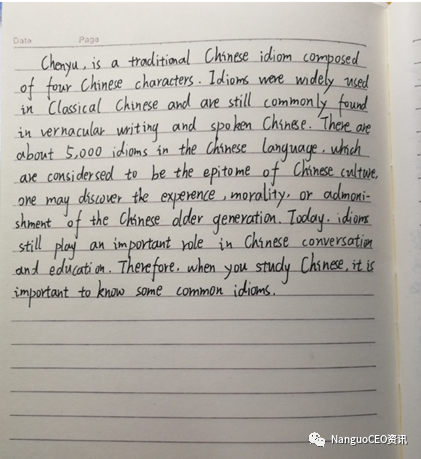 Date Page
Chenyu, is a traditional Chinese idiom composed
of four Chinese characters. Idioms were widely used
in Classical Chinese and are still commonly found
in vernacular writing and spoken Chinese. There are
about 5,000 idioms in the Chinese language, which
are considersed to be the epitome of Chinese culture,
one may discover the experence, morality, or admoni-
shment of the Chinese older generation. Today, idioms
still play an important role in Chinese conversation
and education. Therefore, when you study Chinese, it is
important to know some common idioms.
NanguoCEO资讯